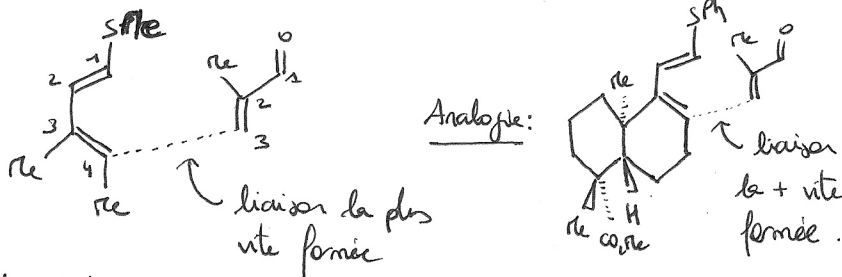 SMe
1
2
3
4
Me
Me
Me
O
1
2
3
liaison la plus
vite formée
Analogie:
SPh
Me
O
Me
H
Me
CO2Me
liaison
la + vite
formée.